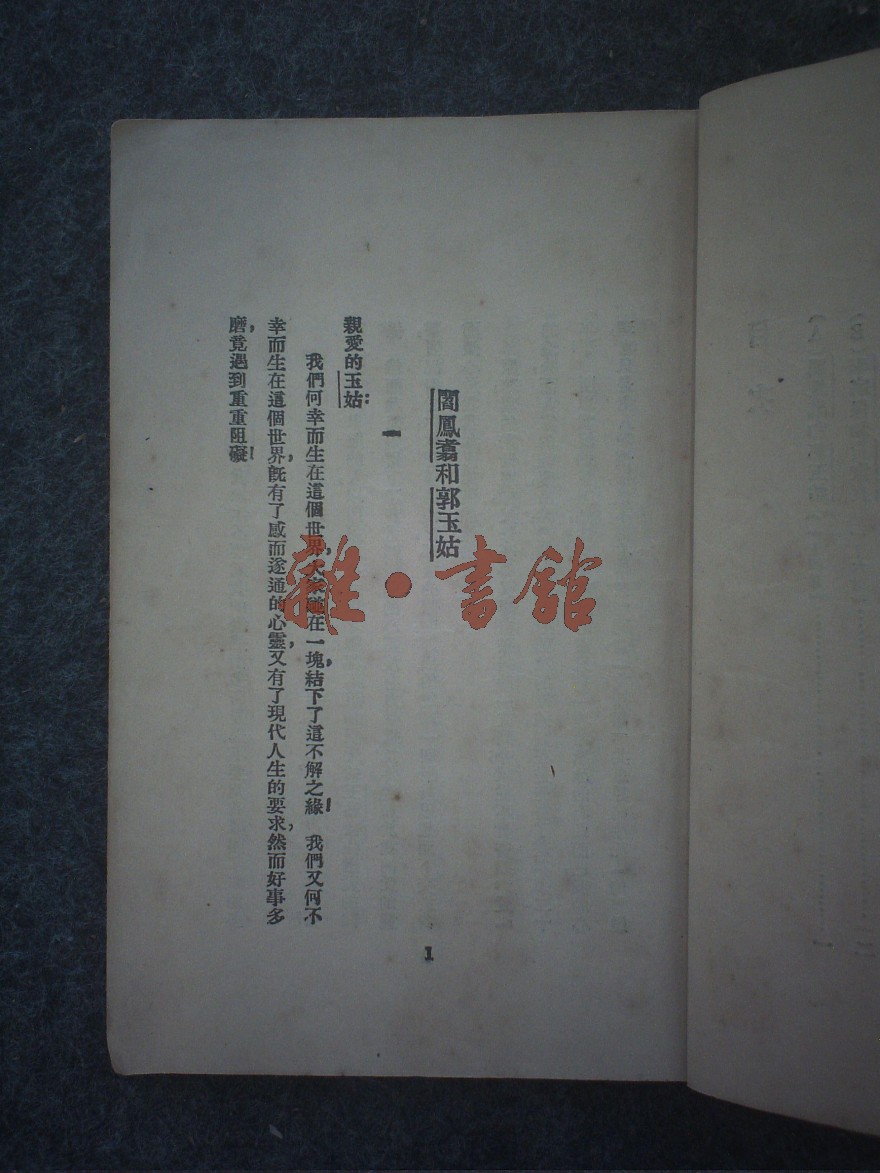 閻鳳翥和郭玉姑
一
親愛的玉姑：
我們何幸而生在這個世界，大家碰在一塊，結下了這不解之緣！我們又何不
幸而生在這個世界，旣有了感而遂通的心靈，又有了現代人生的要求，然而好事多
磨，竟遇到重重阻礙！
1
雜·書館
目次